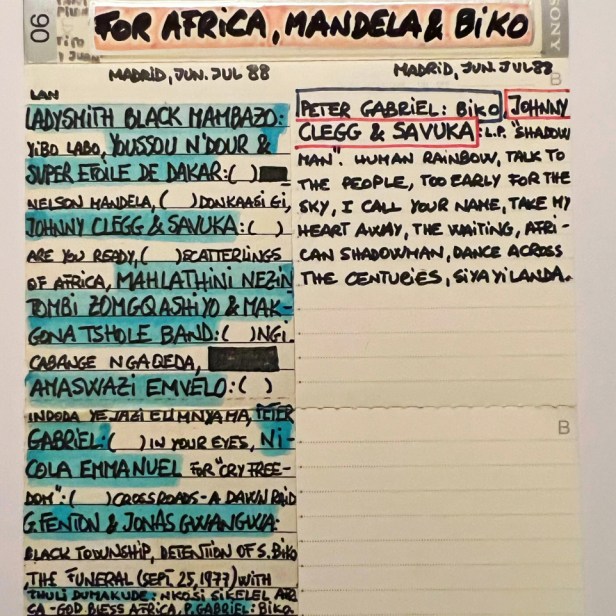 90
FOR AFRICA, MANDELA & BIKO
SONY
MADRID, JUN. JUL 88
LAN
LADYSMITH BLACK MAMBAZO:
YIBO LABO, YOUSSOU N'DOUR &
SUPER ETOILE DE DAKAR:( )
NELSON MANDELA, ( )DONKAASI GI,
JOHNNY CLEGG & SAVUKA:( )
ARE YOU READY, ( )SCATTERLINGS
OF AFRICA, MAHLATHINI NEZIN
TOMBI ZOMGQASHIYO & MAK-
GONA TSHOLE BAND:( )NGI
CABANGE NGAQEDA,
AMASWAZI EMVELO:( )
INDODA YEJAZI ELIMNYAMA, PETER
GABRIEL:( ) IN YOUR EYES, NI-
COLA EMMANUEL FOR "CRY FREE-
DOM":( )CROSSROADS-A DAWN RAID
G. FENTON & JONAS GWANGWA:
BLACK TOWNSHIP, DETENTION OF S. BIKO
,THE FUNERAL (SEPT. 25, 1977) WITH
THULI DUMAKUDE: NKOSI SIKELEL AFRI
CA-GOD BLESS AFRICA, P. GABRIEL: BIKO.
MADRID, JUN. JUL 88
B
PETER GABRIEL: BIKO, JOHNNY
CLEGG & SAVUKA: L.P. "SHADOW
MAN". HUMAN RAINBOW, TALK TO
THE PEOPLE, TOO EARLY FOR THE
SKY, I CALL YOUR NAME, TAKE MY
HEART AWAY, THE WAITING, AFRI-
CAN SHADOWMAN, DANCE ACROSS
THE CENTURIES, SIYAYILANDA.
B